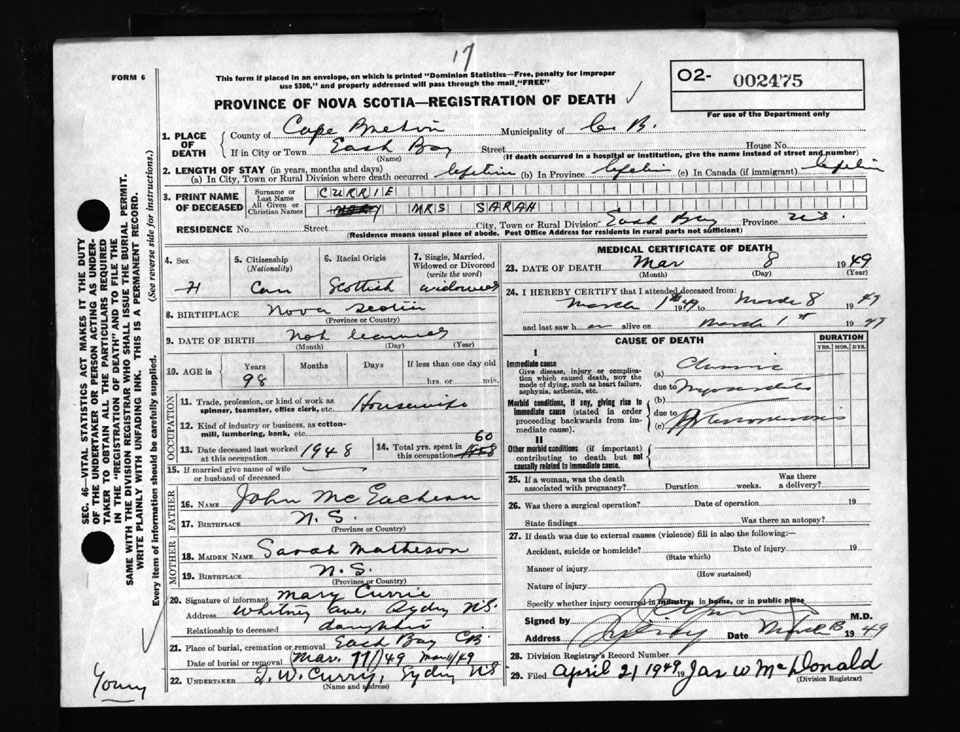 17
FORM 6
This form if placed in an envelope, on which is printed "Dominion Statistics—Free, penalty for improper
use $300," and properly addressed will pass through the mail "FREE"
O2- 002475
For use of the Department only
PROVINCE OF NOVA SCOTIA—REGISTRATION OF DEATH ✓
SEC. 46—VITAL STATISTICS ACT MAKES IT THE DUTY
OF THE UNDERTAKER OR PERSON ACTING AS UNDER-
TAKER TO OBTAIN ALL THE PARTICULARS REQUIRED
IN THE "REGISTRATION OF DEATH" AND TO FILE THE
SAME WITH THE DIVISION REGISTRAR WHO SHALL ISSUE THE BURIAL PERMIT.
WRITE PLAINLY WITH UNFADING INK. THIS IS A PERMANENT RECORD.
Every item of information should be carefully supplied. (See reverse side for instructions.)
1. PLACE OF DEATH
County of Cape Breton Municipality of C. B.
If in City or Town East Bay Street House No.
(Name) (If death occurred in a hospital or institution, give the name instead of street and number)
2. LENGTH OF STAY (in years, months and days)
(a) In City, Town or Rural Division where death occurred lifetime (b) In Province lifetime (c) In Canada (if immigrant) lifetime
3. PRINT NAME OF DECEASED
Surname or Last Name CURRIE
All Given or Christian Names MRS SARAH
RESIDENCE No. Street City, Town or Rural Division East Bay Province NS.
(Residence means usual place of abode. Post Office Address for residents in rural parts not sufficient)
4. Sex
5. Citizenship (Nationality) Can
6. Racial Origin Scottish
7. Single, Married, Widowed or Divorced (write the word) widowed
8. BIRTHPLACE Nova Scotia
(Province or Country)
9. DATE OF BIRTH Not learned
(Month) (Day) (Year)
10. AGE in Years 98 Months Days If less than one day old hrs. or min.
OCCUPATION
11. Trade, profession, or kind of work as spinner, teamster, office clerk, etc. Housewife
12. Kind of industry or business, as cotton-mill, lumbering, bank, etc.
13. Date deceased last worked at this occupation 1948
14. Total yrs. spent in this occupation 60
15. If married give name of wife or husband of deceased
FATHER
16. NAME John McEachern
17. BIRTHPLACE N.S.
(Province or Country)
MOTHER
18. MAIDEN NAME Sarah Matheson
19. BIRTHPLACE N.S.
(Province or Country)
20. Signature of informant Mary Currie
Address Whitney Ave, Sydney NS.
Relationship to deceased daughter
21. Place of burial, cremation or removal East Bay CB
Date of burial or removal Mar. 11/49 Mar 11/49
22. UNDERTAKER T. W. Curry, Sydney NS
(Name and address)
MEDICAL CERTIFICATE OF DEATH
23. DATE OF DEATH Mar 8 1949
(Month) (Day) (Year)
24. I HEREBY CERTIFY that I attended deceased from:
March 1st 1949 to March 8 1949
and last saw h er alive on March 1st 1949
CAUSE OF DEATH
DURATION
YRS. MOS. DYS.
I
Immediate cause
Give disease, injury or complication which caused death, NOT the mode of dying, such as heart failure, asphyxia, asthenia, etc.
(a) Chronic
due to Myocarditis
Morbid conditions, if any, giving rise to immediate cause (stated in order proceeding backwards from immediate cause).
(b)
due to
(c)
II
Other morbid conditions (if important) contributing to death but not causally related to immediate cause.
25. If a woman, was the death associated with pregnancy? Duration weeks. Was there a delivery?
26. Was there a surgical operation? Date of operation 19
State findings Was there an autopsy?
27. If death was due to external causes (violence) fill in also the following:—
Accident, suicide or homicide? Date of injury 19
(State which)
Manner of injury
(How sustained)
Nature of injury
Specify whether injury occurred in industry, in home, or in public place
Signed by M.D.
Address Sydney Date March 1949
28. Division Registrar's Record Number
29. Filed April 21 1949 19 Jas W McDonald
(Division Registrar)